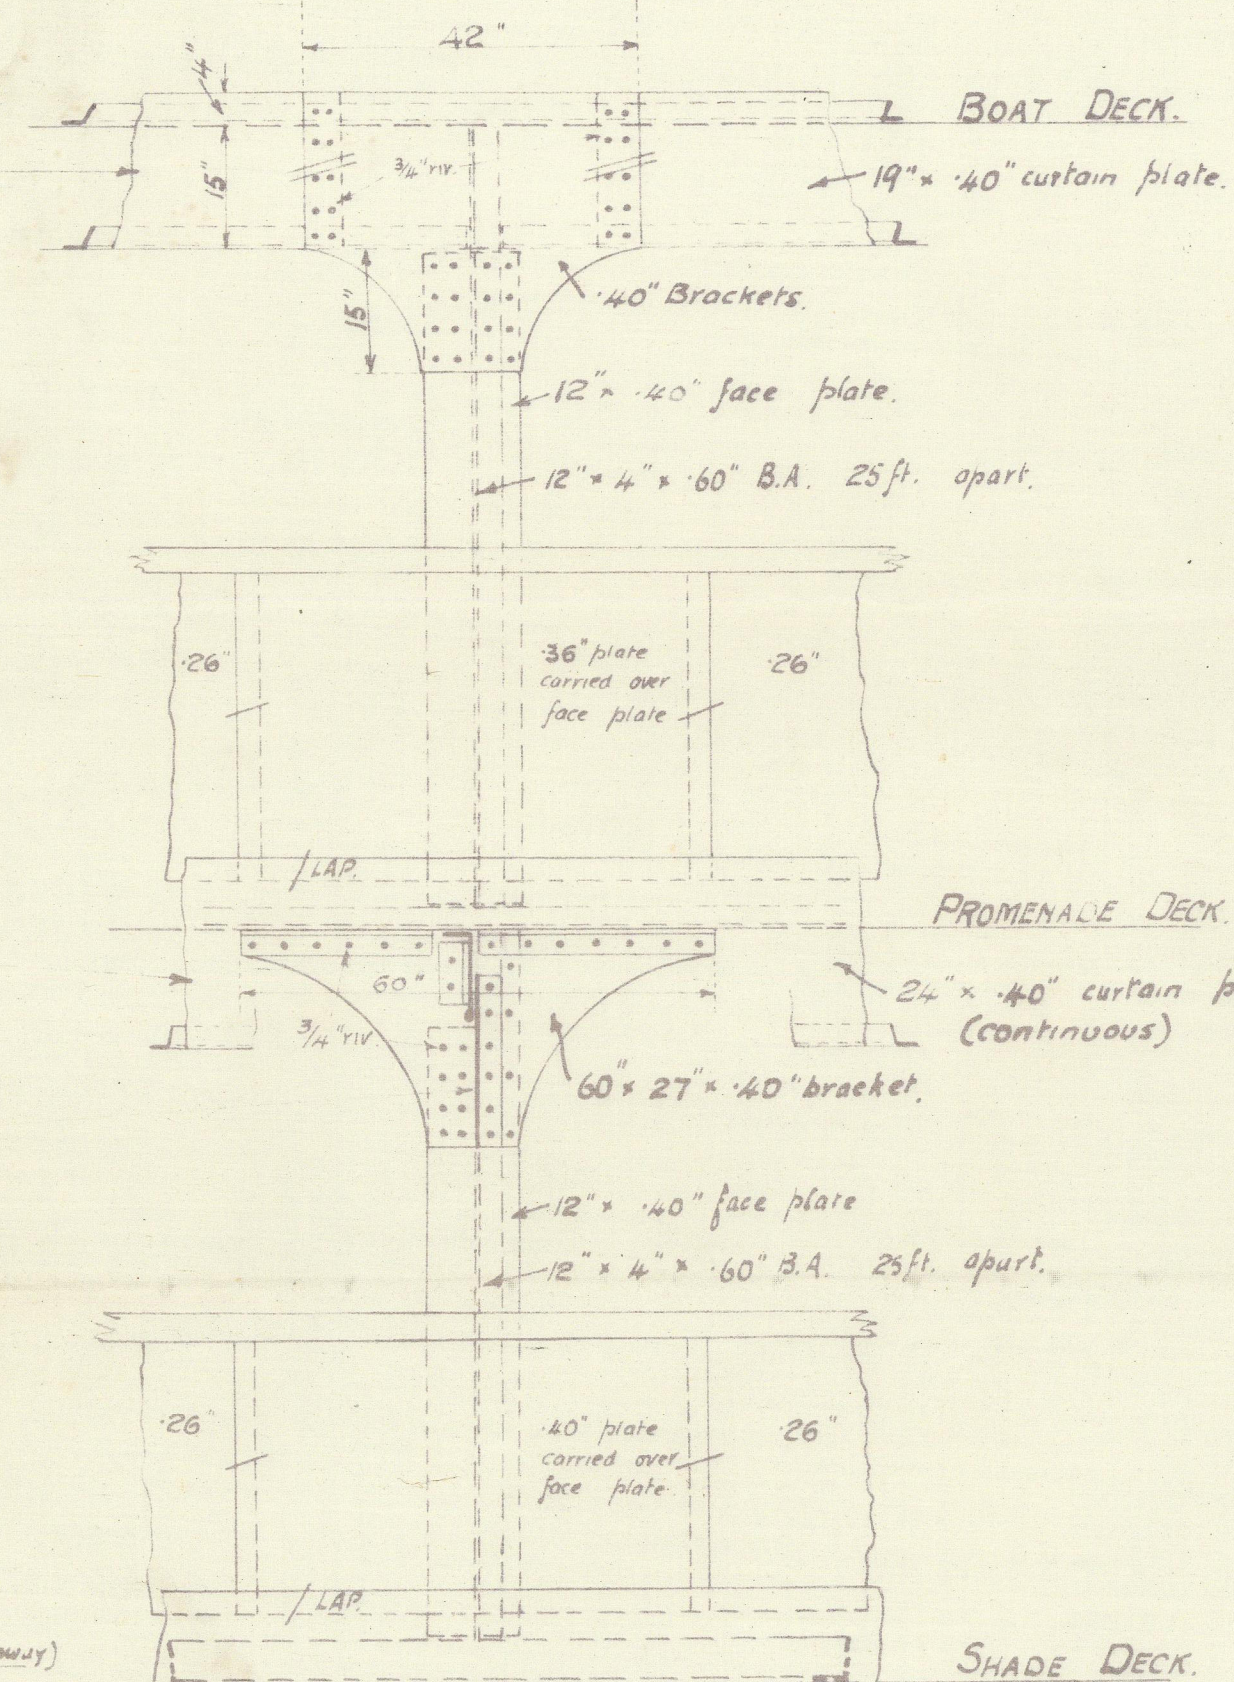 42"
4"
BOAT DECK.
15"
3/4" riv.
19" × .40" curtain plate.
15"
.40" Brackets.
12" × .40" face plate.
12" × 4" × .60" B.A. 25 ft. apart.
.26"
.36" plate
carried over
face plate
.26"
LAP.
PROMENADE DECK.
60"
24" × .40" curtain
(continuous)
3/4" riv.
60" × 27" × .40" bracket.
12" × .40" face plate
12" × 4" × .60" B.A. 25 ft. apart.
.26"
.40" plate
carried over
face plate.
.26"
LAP.
SHADE DECK.